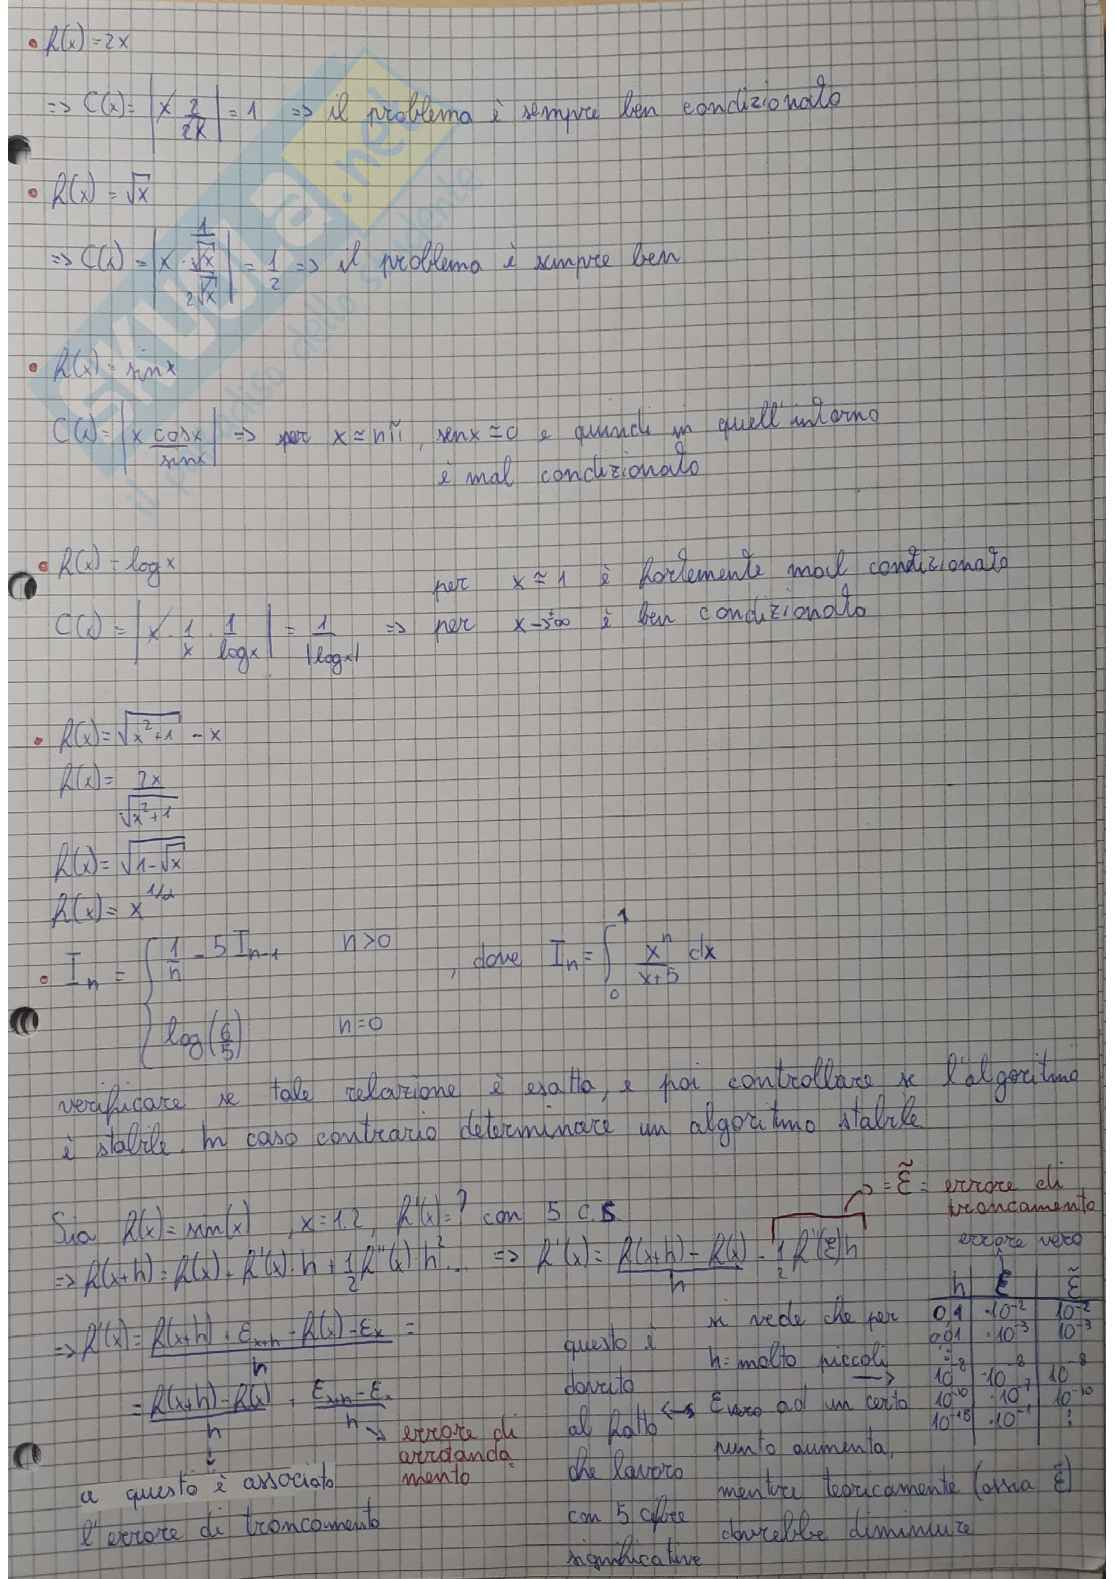 • f(x) = 2x
=> C(x) = | x 2/2x | = 1 => il problema è sempre ben condizionato
• f(x) = √x
=> C(x) = | x · 1/√x / 2√x | = 1/2 => il problema è sempre ben
• f(x) = sinx
C(x) = | x cosx/sinx | => per x ≃ nπ, senx ≃ 0 e quindi in quell'intorno
è mal condizionato
• f(x) = logx
per x ≃ 1 è fortemente mal condizionato
C(x) = | x · 1/x · 1/logx | = 1/|logx| => per x→+∞ è ben condizionato
• f(x) = √(x²+1) - x
f(x) = 2x/√(x²+1)
f(x) = √(1-√x)
f(x) = x^1/2
• In = { 1/n - 5 In-1 n>0 , dove In = ∫₀¹ xⁿ/(x+5) dx
log(6/5) n=0
verificare se tale relazione è esatta, e poi controllare se l'algoritmo
è stabile. In caso contrario determinare un algoritmo stabile
Sia f(x) = sin(x) , x=1.2 , f'(x)=? con 5 c.s.
= ε̃ = errore di
troncamento
=> f(x+h) = f(x) + f'(x)·h + 1/2 f''(x)·h² ... => f'(x) = (f(x+h) - f(x))/h - 1/2 f''(ξ)h
errore vero
=> f'(x) = (f(x+h) + εx+h - f(x) - εx)/h =
= (f(x+h) - f(x))/h + (εx+h - εx)/h
↘ errore di
arrotonda
mento
a questo è associato
l'errore di troncamento
questo è
dovuto
al fatto
che lavoro
con 5 cifre
significative
si vede che per
h = molto piccoli
εvero ad un certo
punto aumenta,
mentre teoricamente (ossia ε̃)
dovrebbe diminuire
h | ε | ε̃
0,1 | ·10⁻² | 10⁻²
0,01 | ·10⁻³ | 10⁻³
10⁻⁸ | ·10⁻⁸ | 10⁻⁸
10⁻¹⁰ | ·10⁻⁷ | 10⁻¹⁰
10⁻¹⁶ | ·10⁻¹ | :
SKUOLA.net
il paradiso dello studente